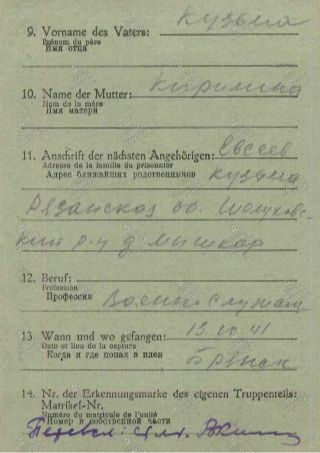 9. Vorname des Vaters: Кузьма
Prénom du père
Имя отца
10. Name der Mutter:
Nom de la mère
Имя матери
11. Anschrift der nächsten Angehörigen: Евсеев
Adresse de la famille du prisonnier
Адрес ближайших родственников Кузьма
Рязанская об.
р-н д
12. Beruf:
Profession
Профессия Военнослужащ
13 Wann und wo gefangen: 41
Date et lieu de la capture
Когда и где попал в плен Брянск
14. Nr. der Erkennungsmarke des eigenen Truppenteils:
Matrikel-Nr.
Numéro du matricule de l'unité
Номер в собственной части